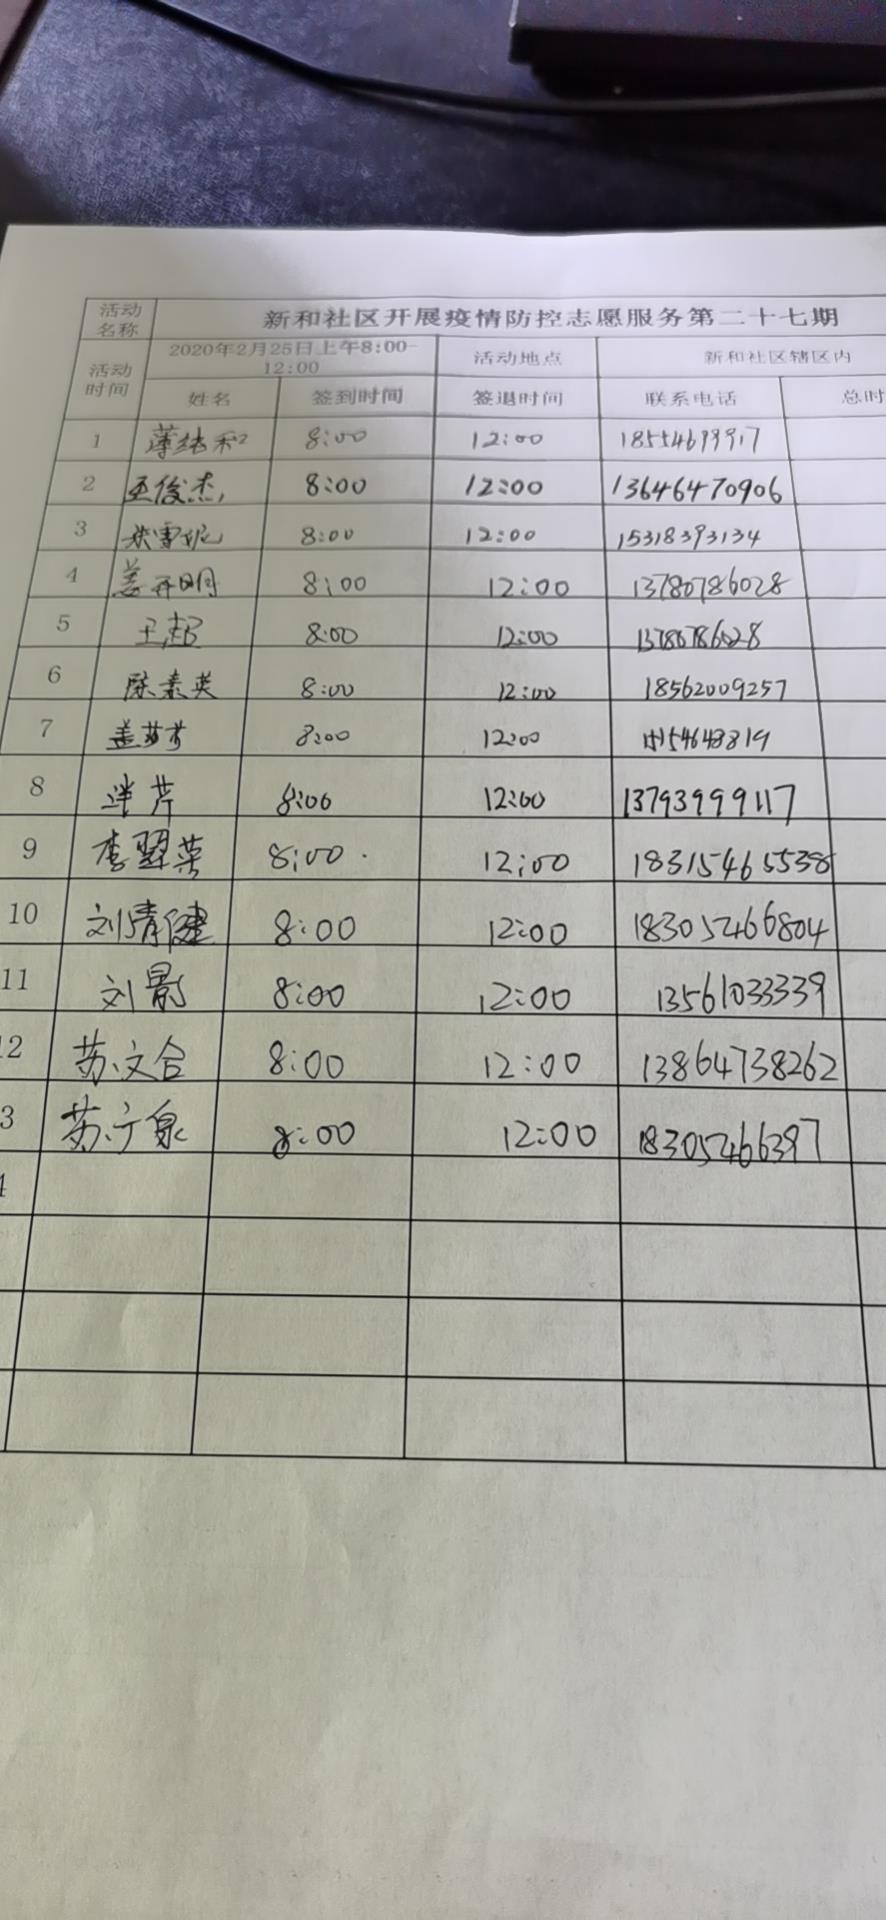 活动名称 新和社区开展疫情防控志愿服务第二十七期
活动时间 2020年2月25日上午8:00-12:00 活动地点 新和社区辖区内
姓名 签到时间 签退时间 联系电话 总时
1 8:00 12:00 18554699917
2 王俊杰 8:00 12:00 13646470906
3 8:00 12:00 15318393134
4 姜开明 8:00 12:00 13780786028
5 王超 8:00 12:00 13780786028
6 陈素英 8:00 12:00 18562009257
7 盖芬芳 8:00 12:00
8 8:00 12:00 13793999117
9 李翠荣 8:00 12:00 18315465538
10 刘清健 8:00 12:00 18305466804
11 刘影 8:00 12:00 13561033339
12 苏文合 8:00 12:00 13864738262
3 苏广泉 8:00 12:00 18305466397
4